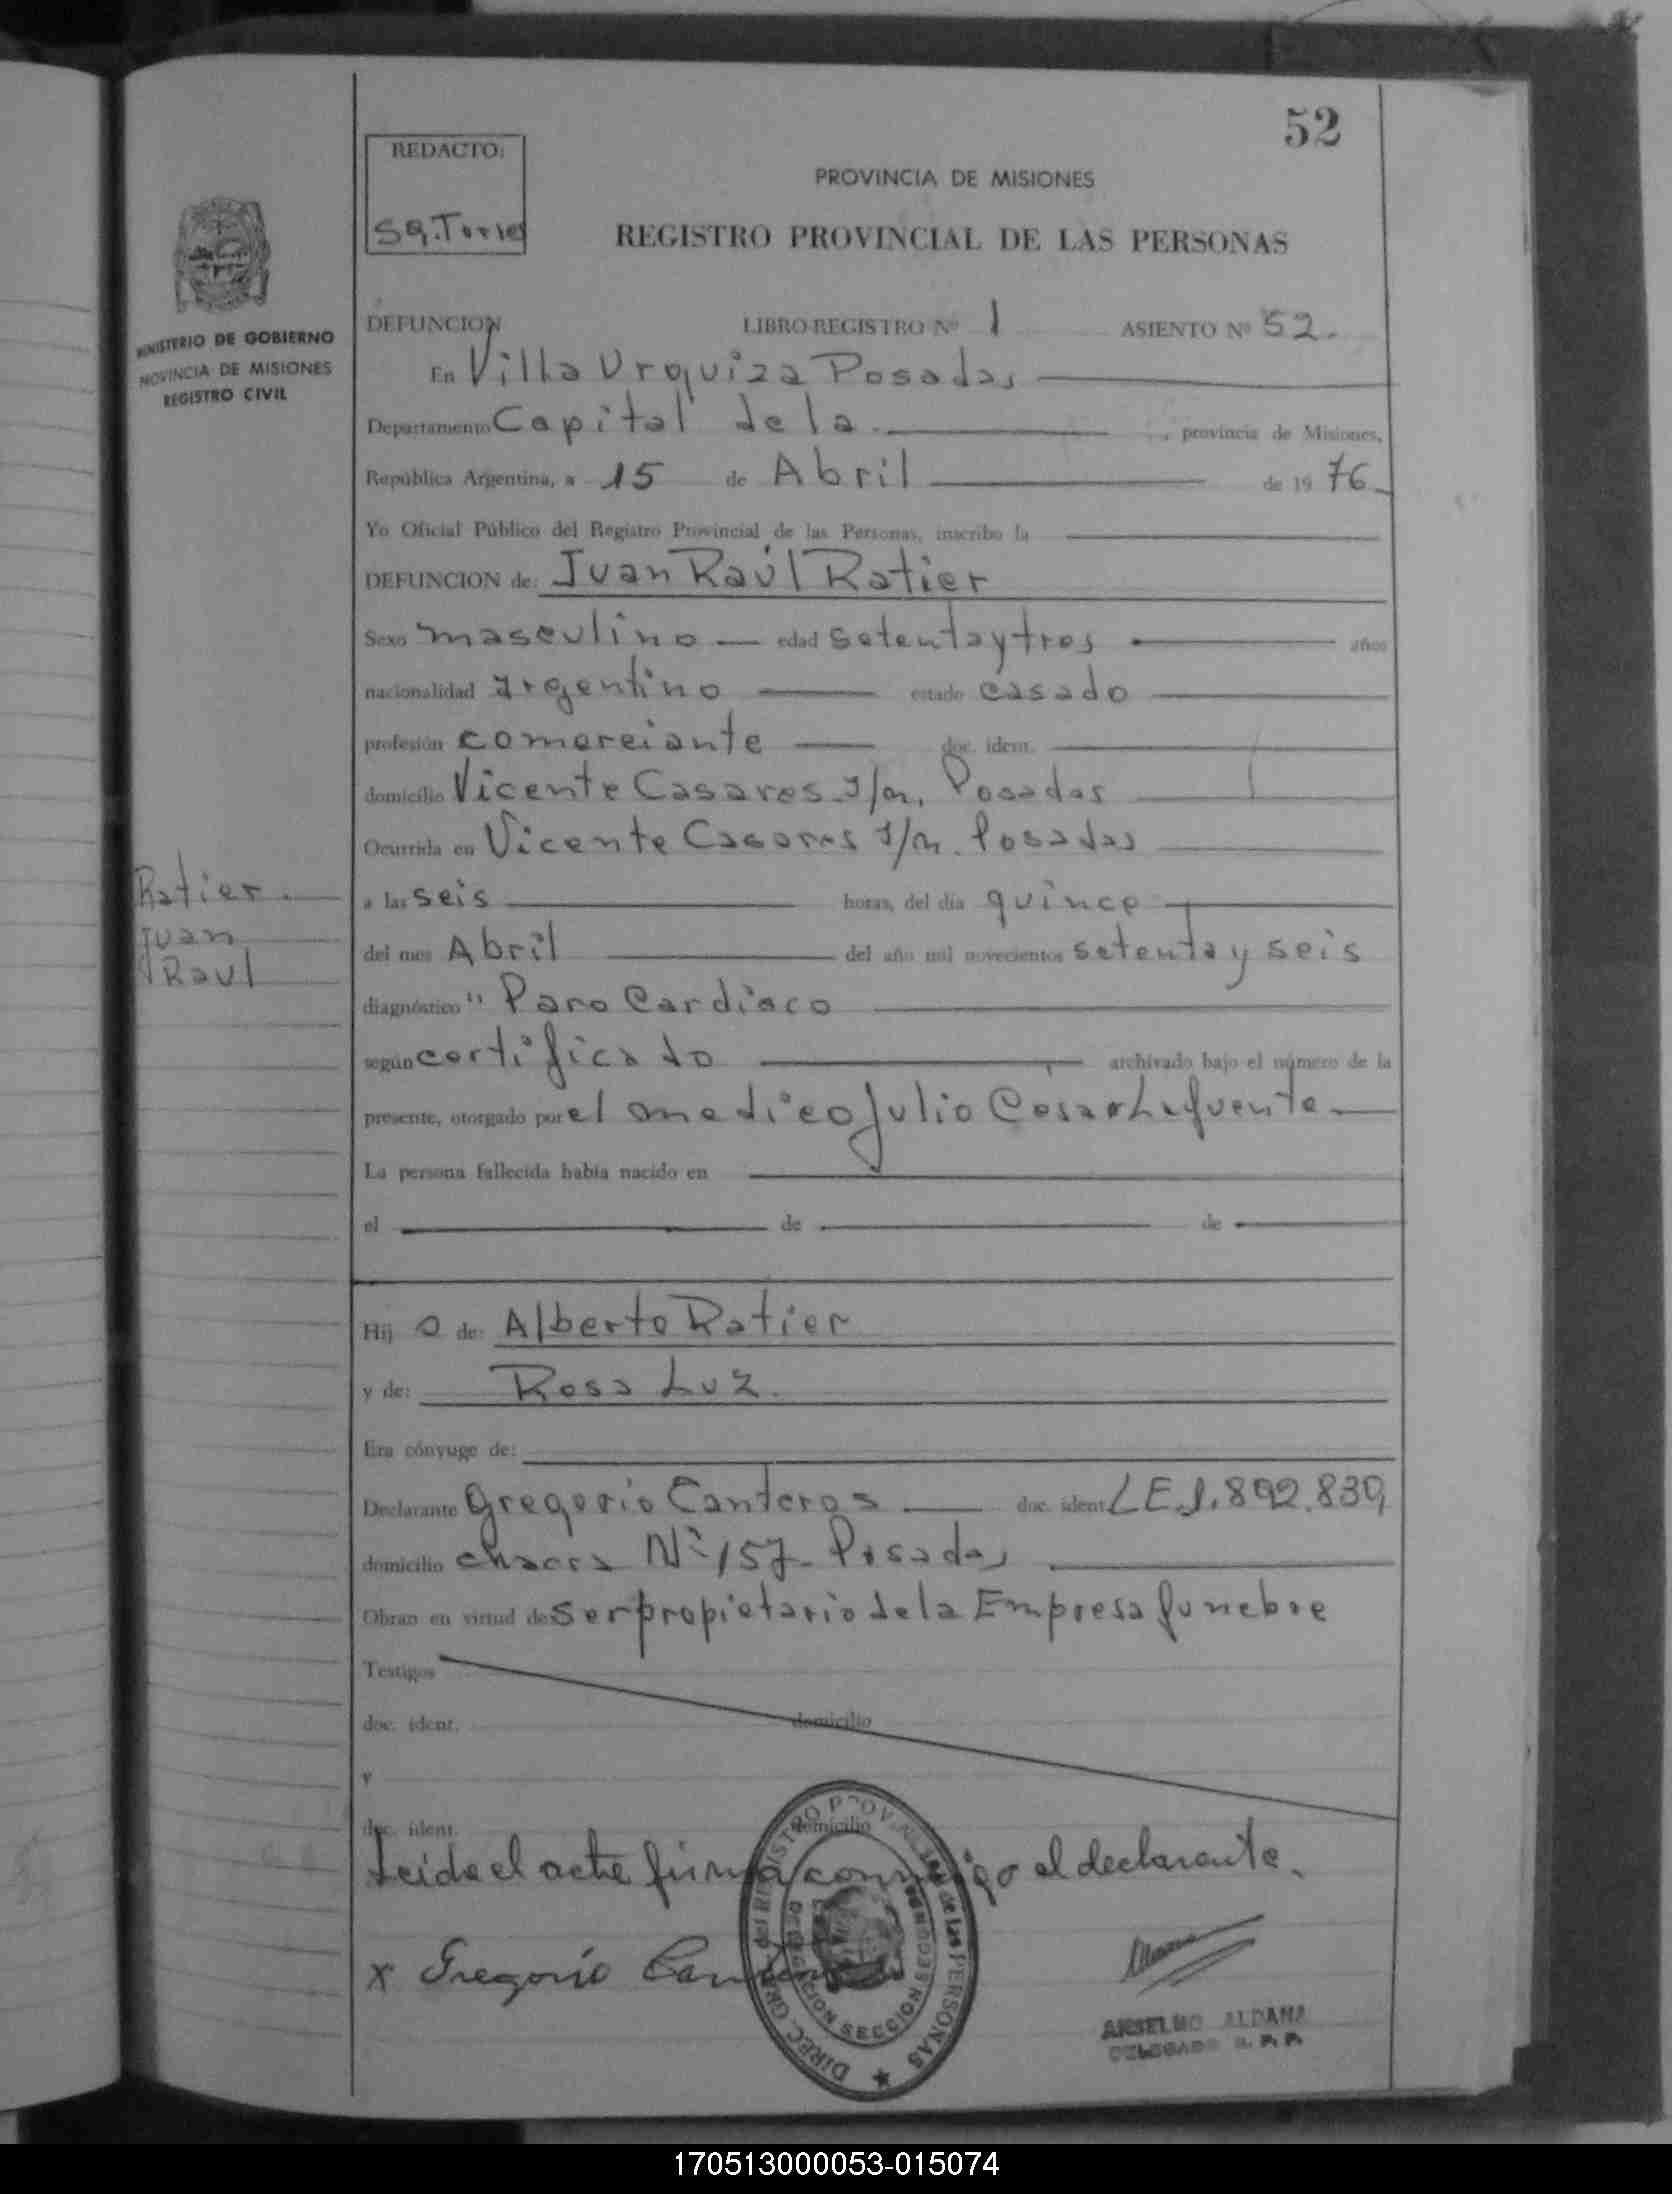 52
REDACTO:
PROVINCIA DE MISIONES
REGISTRO PROVINCIAL DE LAS PERSONAS
MINISTERIO DE GOBIERNO
PROVINCIA DE MISIONES
REGISTRO CIVIL
DEFUNCION LIBRO-REGISTRO Nº 1 ASIENTO Nº 52.
En Villa Urquiza Posadas
Departamento Capital de la , provincia de Misiones,
República Argentina, a 15 de Abril de 19 76
Yo Oficial Público del Registro Provincial de las Personas, inscribo la
DEFUNCION de: Juan Raúl Ratier
Sexo masculino edad setenta y tres años
nacionalidad argentino estado casado
profesión comerciante doc. ident.
domicilio Vicente Casares s/n. Posadas
Ocurrida en Vicente Casares s/n. Posadas
Ratier.
Juan
Raul
a las seis horas, del día quince
del mes Abril del año mil novecientos setenta y seis
diagnóstico " Paro Cardiaco
según certificado archivado bajo el número de la
presente, otorgado por el medico Julio Cesar Lafuente
La persona fallecida había nacido en
el de de
Hij o de: Alberto Ratier
y de: Rosa Luz.
Era cónyuge de:
Declarante Gregorio Canteros doc. ident. LE.1.892.839,
domicilio chacra Nº 157- Posadas
Obran en virtud de ser propietario de la Empresa funebre
Testigos
doc. ident. domicilio
y
doc. ident. domicilio
Leida el acta firma conmigo el declarante.
x Gregorio
DIREC. GRAL. del REGISTRO PROVINCIAL de las PERSONAS
SECCION
ANSELMO ALDANA
DELEGADO R. P. P.
170513000053-015074